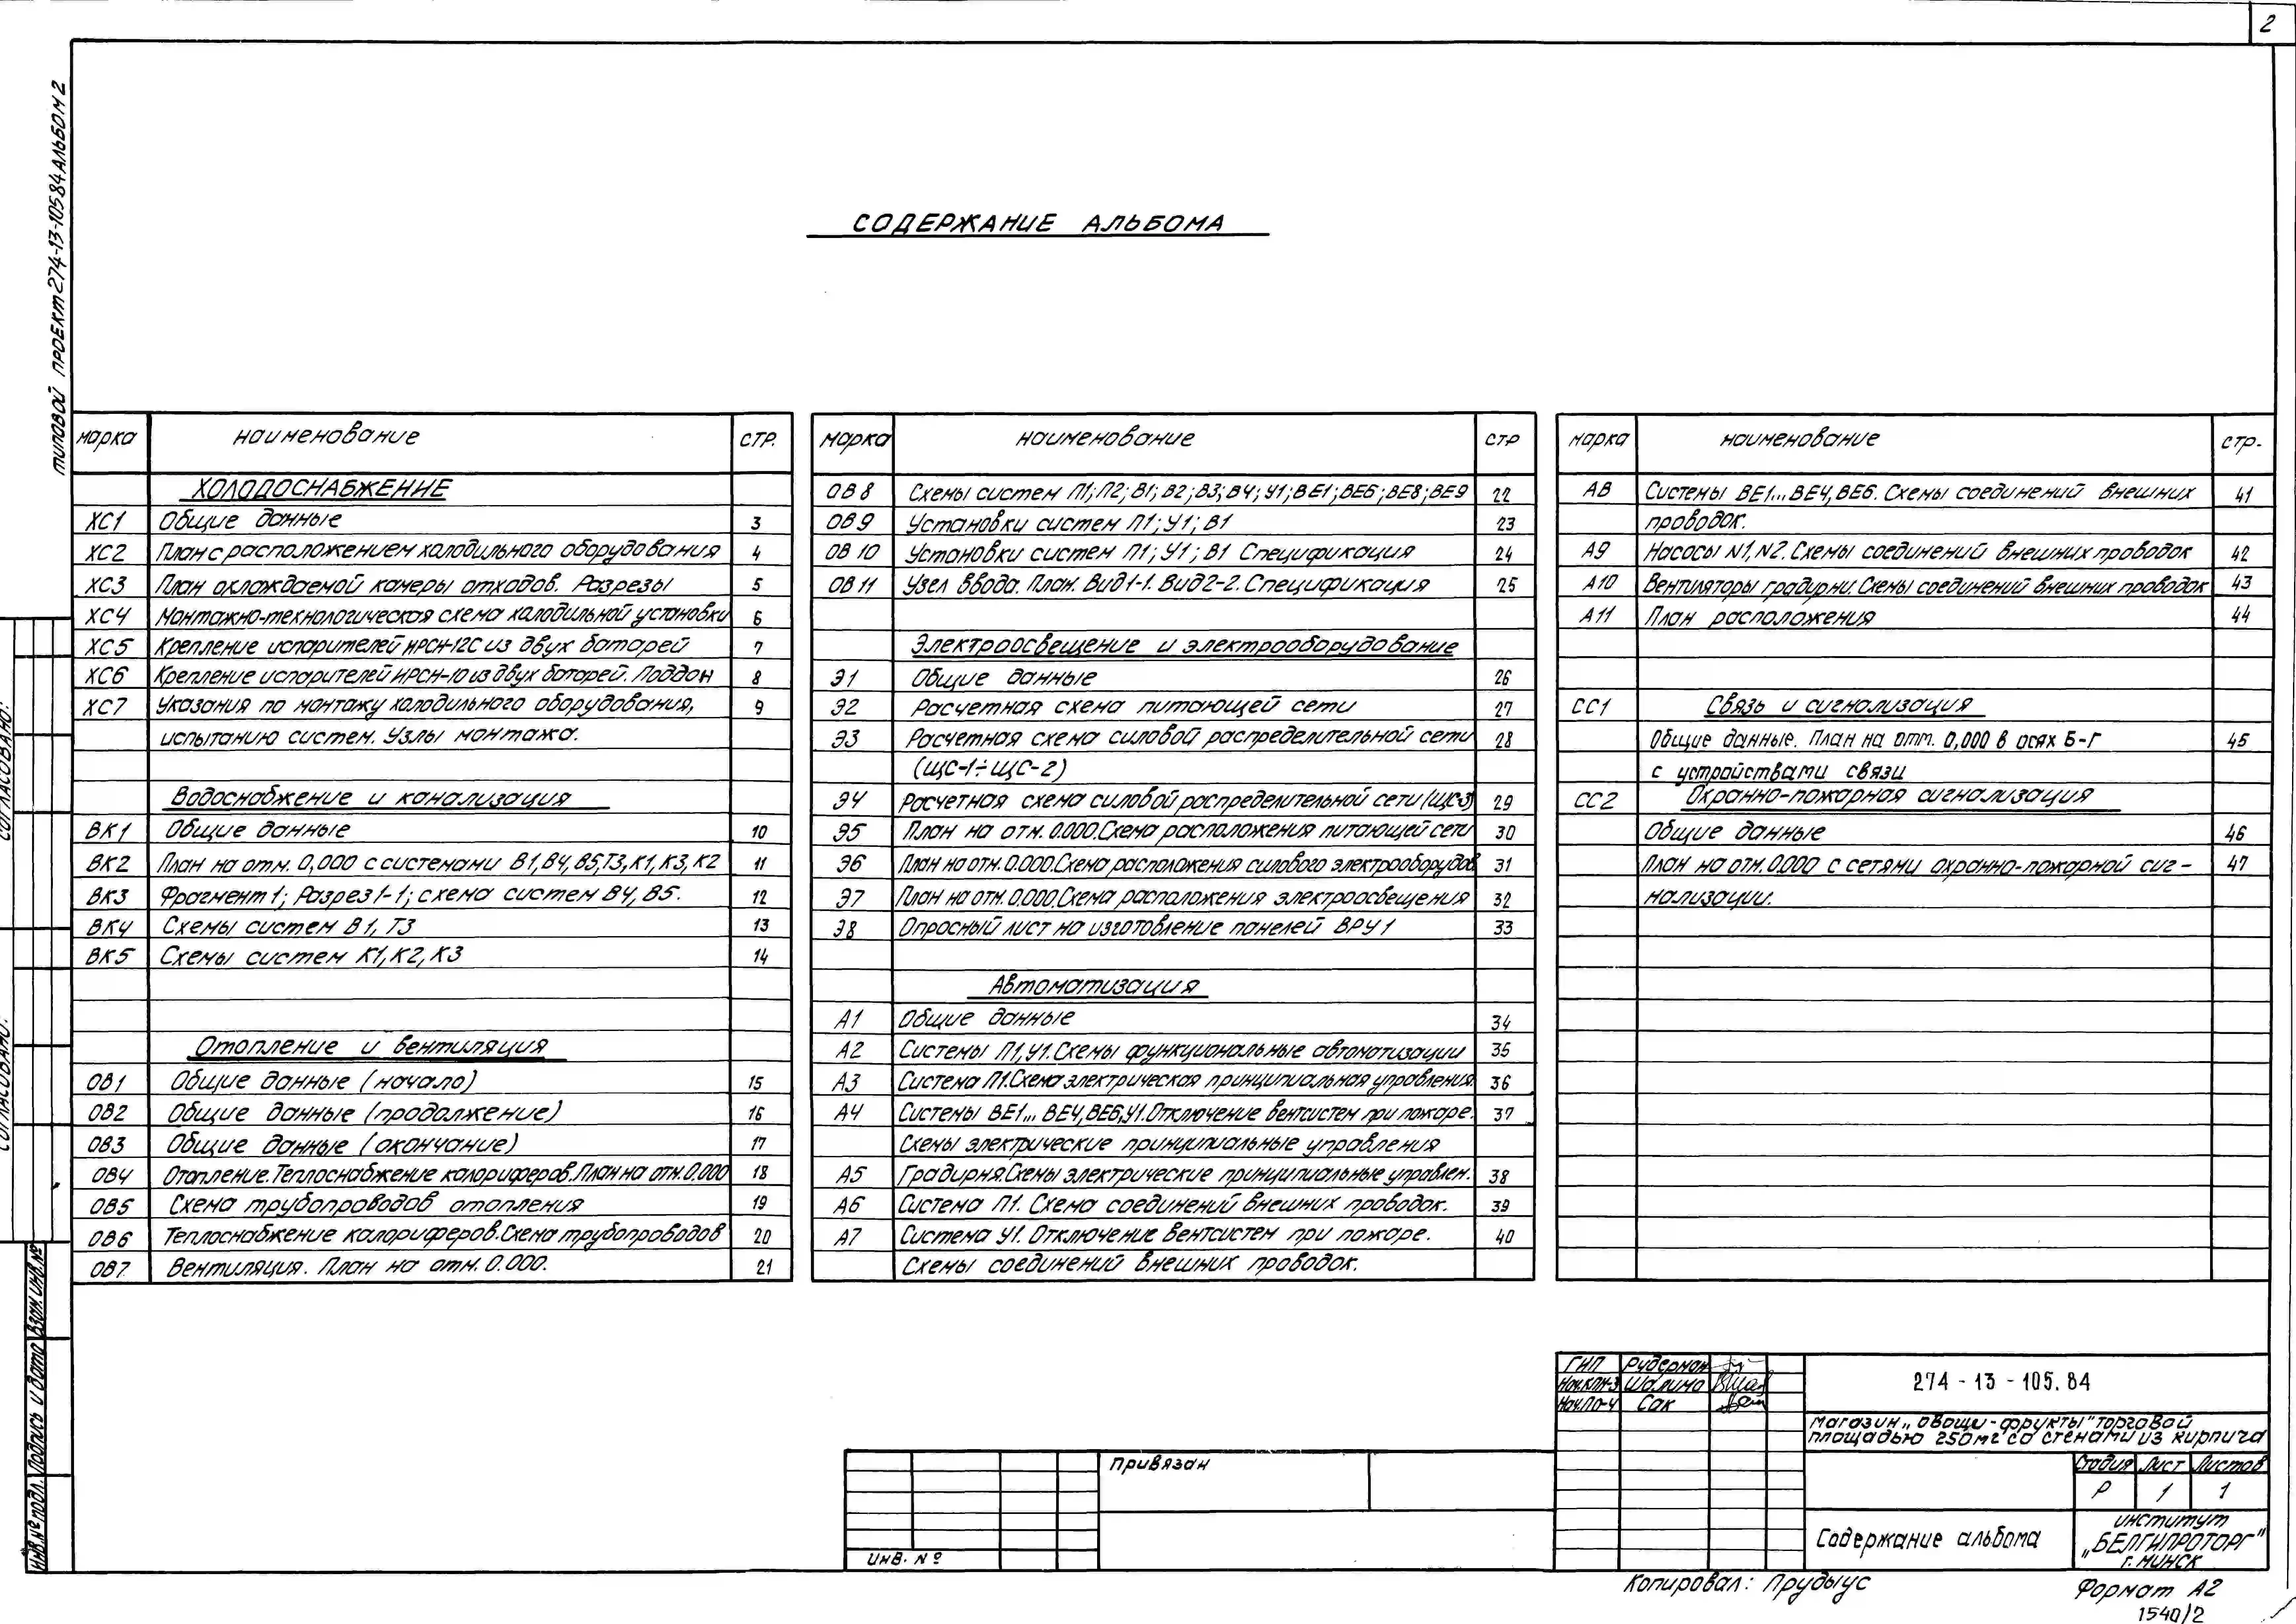 2
ТИПОВОЙ ПРОЕКТ 274-13-105.84 АЛЬБОМ 2
СОДЕРЖАНИЕ АЛЬБОМА
марка наименование СТР.
ХОЛОДОСНАБЖЕНИЕ
ХС1 Общие данные 3
ХС2 План с расположением холодильного оборудования 4
ХС3 План охлаждаемой камеры отходов. Разрезы 5
ХС4 Монтажно-технологическая схема холодильной установки 6
ХС5 Крепление испарителей ИРСН-12С из двух батарей 7
ХС6 Крепление испарителей ИРСН-10 из двух батарей. Поддон 8
ХС7 Указания по монтажу холодильного оборудования, 9
испытанию систем. Узлы монтажа.
Водоснабжение и канализация
ВК1 Общие данные 10
ВК2 План на отм. 0,000 с системами В1,В4,В5,Т3,К1,К3,К2 11
ВК3 Фрагмент 1; Разрез 1-1; схема систем В4, В5. 12
ВК4 Схемы систем В1, Т3 13
ВК5 Схемы систем К1, К2, К3 14
Отопление и вентиляция
ОВ1 Общие данные (начало) 15
ОВ2 Общие данные (продолжение) 16
ОВ3 Общие данные (окончание) 17
ОВ4 Отопление. Теплоснабжение калориферов. План на отм. 0.000 18
ОВ5 Схема трубопроводов отопления 19
ОВ6 Теплоснабжение калориферов. Схема трубопроводов 20
ОВ7 Вентиляция. План на отм. 0.000. 21
марка наименование СТР
ОВ8 Схемы систем П1; П2; В1; В2; В3; В4; У1; ВЕ1; ВЕ6; ВЕ8; ВЕ9 22
ОВ9 Установки систем П1; У1; В1 23
ОВ10 Установки систем П1; У1; В1 Спецификация 24
ОВ11 Узел ввода. План. Вид 1-1. Вид 2-2. Спецификация 25
Электроосвещение и электрооборудование
Э1 Общие данные 26
Э2 Расчетная схема питающей сети 27
Э3 Расчетная схема силовой распределительной сети 28
(ЩС-1÷ЩС-2)
Э4 Расчетная схема силовой распределительной сети (ЩС-3) 29
Э5 План на отм. 0.000. Схема расположения питающей сети 30
Э6 План на отм. 0.000. Схема расположения силового электрооборудов 31
Э7 План на отм. 0.000. Схема расположения электроосвещения 32
Э8 Опросный лист на изготовление панелей ВРУ1 33
Автоматизация
А1 Общие данные 34
А2 Системы П1, У1. Схемы функциональные автоматизации 35
А3 Система П1. Схема электрическая принципиальная управления. 36
А4 Системы ВЕ1... ВЕ4, ВЕ6, У1. Отключение вентсистем при пожаре. 37
Схемы электрические принципиальные управления
А5 Градирня. Схемы электрические принципиальные управлен. 38
А6 Система П1. Схема соединений внешних проводок. 39
А7 Система У1. Отключение вентсистем при пожаре. 40
Схемы соединений внешних проводок.
марка наименование стр.
А8 Системы ВЕ1... ВЕ4, ВЕ6. Схемы соединений внешних 41
проводок.
А9 Насосы N1, N2. Схемы соединений внешних проводок 42
А10 Вентиляторы градирни. Схемы соединений внешних проводок 43
А11 План расположения 44
СС1 Связь и сигнализация
Общие данные. План на отм. 0,000 в осях Б-Г 45
с устройствами связи
СС2 Охранно-пожарная сигнализация
Общие данные 46
План на отм. 0.000 с сетями охранно-пожарной сиг- 47
нализации.
СОГЛАСОВАНО:
СОГЛАСОВАНО:
Инв. № подл. Подпись и дата Взам. инв. №
ГИП Рудерман
Нач.КПМ-3 Шалимо
Нач.ПО-4 Сак
274-13-105.84
магазин „овощи-фрукты" торговой
площадью 250м2 со стенами из кирпича
Стадия Лист Листов
Р 1 1
Содержание альбома
институт
„БЕЛГИПРОТОРГ"
г. МИНСК
Привязан
ИНВ. №
Копировал: Прудыус
Формат А2
1540/2